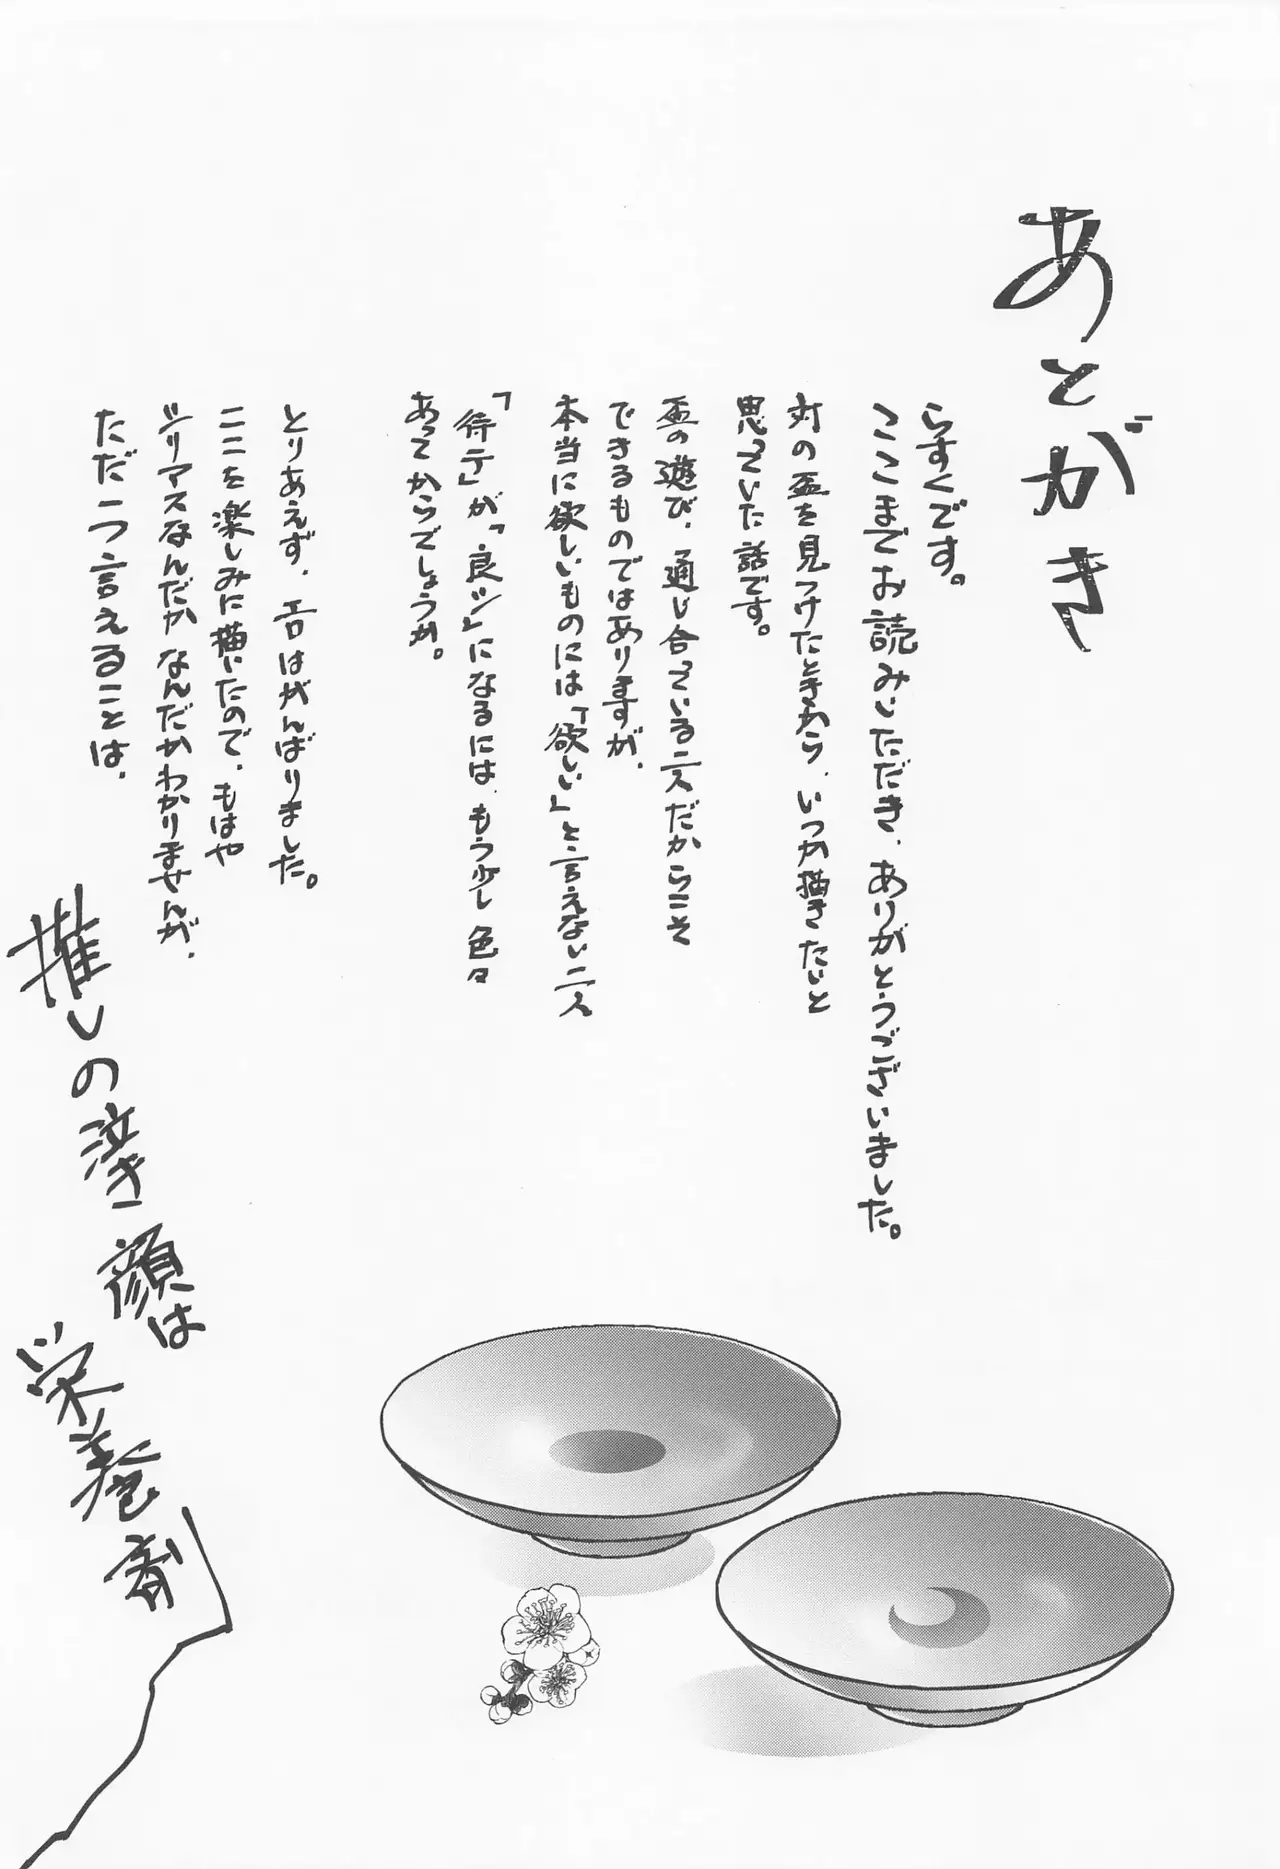 あとがき
らすくです。
ここまでお読みいただき、ありがとうございました。
対の盃を見つけたときから、いつか描きたいと
思っていた話です。
盃の遊び、通じ合っている二人だからこそ
できるものではありますが、
本当に欲しいものには「欲しい」と言えない二人
「待テ」が、「良シ」になるには、もう少し色々
あってからでしょうか。
とりあえず、エロはがんばりました。
ここを楽しみに描いたので、もはや
シリアスなんだかなんだかわかりませんが、
ただ一つ言えることは、
推しの泣き顔は
栄養剤